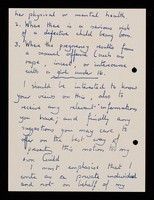 her physical or mental health.
2. Where there is a serious risk
of a defective child being born.
3. Where the pregnancy results from
a sexual offence such as
rape, incest, or intercourse
with a girl under 16.
I should be interested to know
your views on this, also to
receive any relevant information
you have, and finally any
suggestions you may care to
offer on the best way of
passing this motion to my
own Guild.
I must emphasise that I
write as a private individual
and not on behalf of my